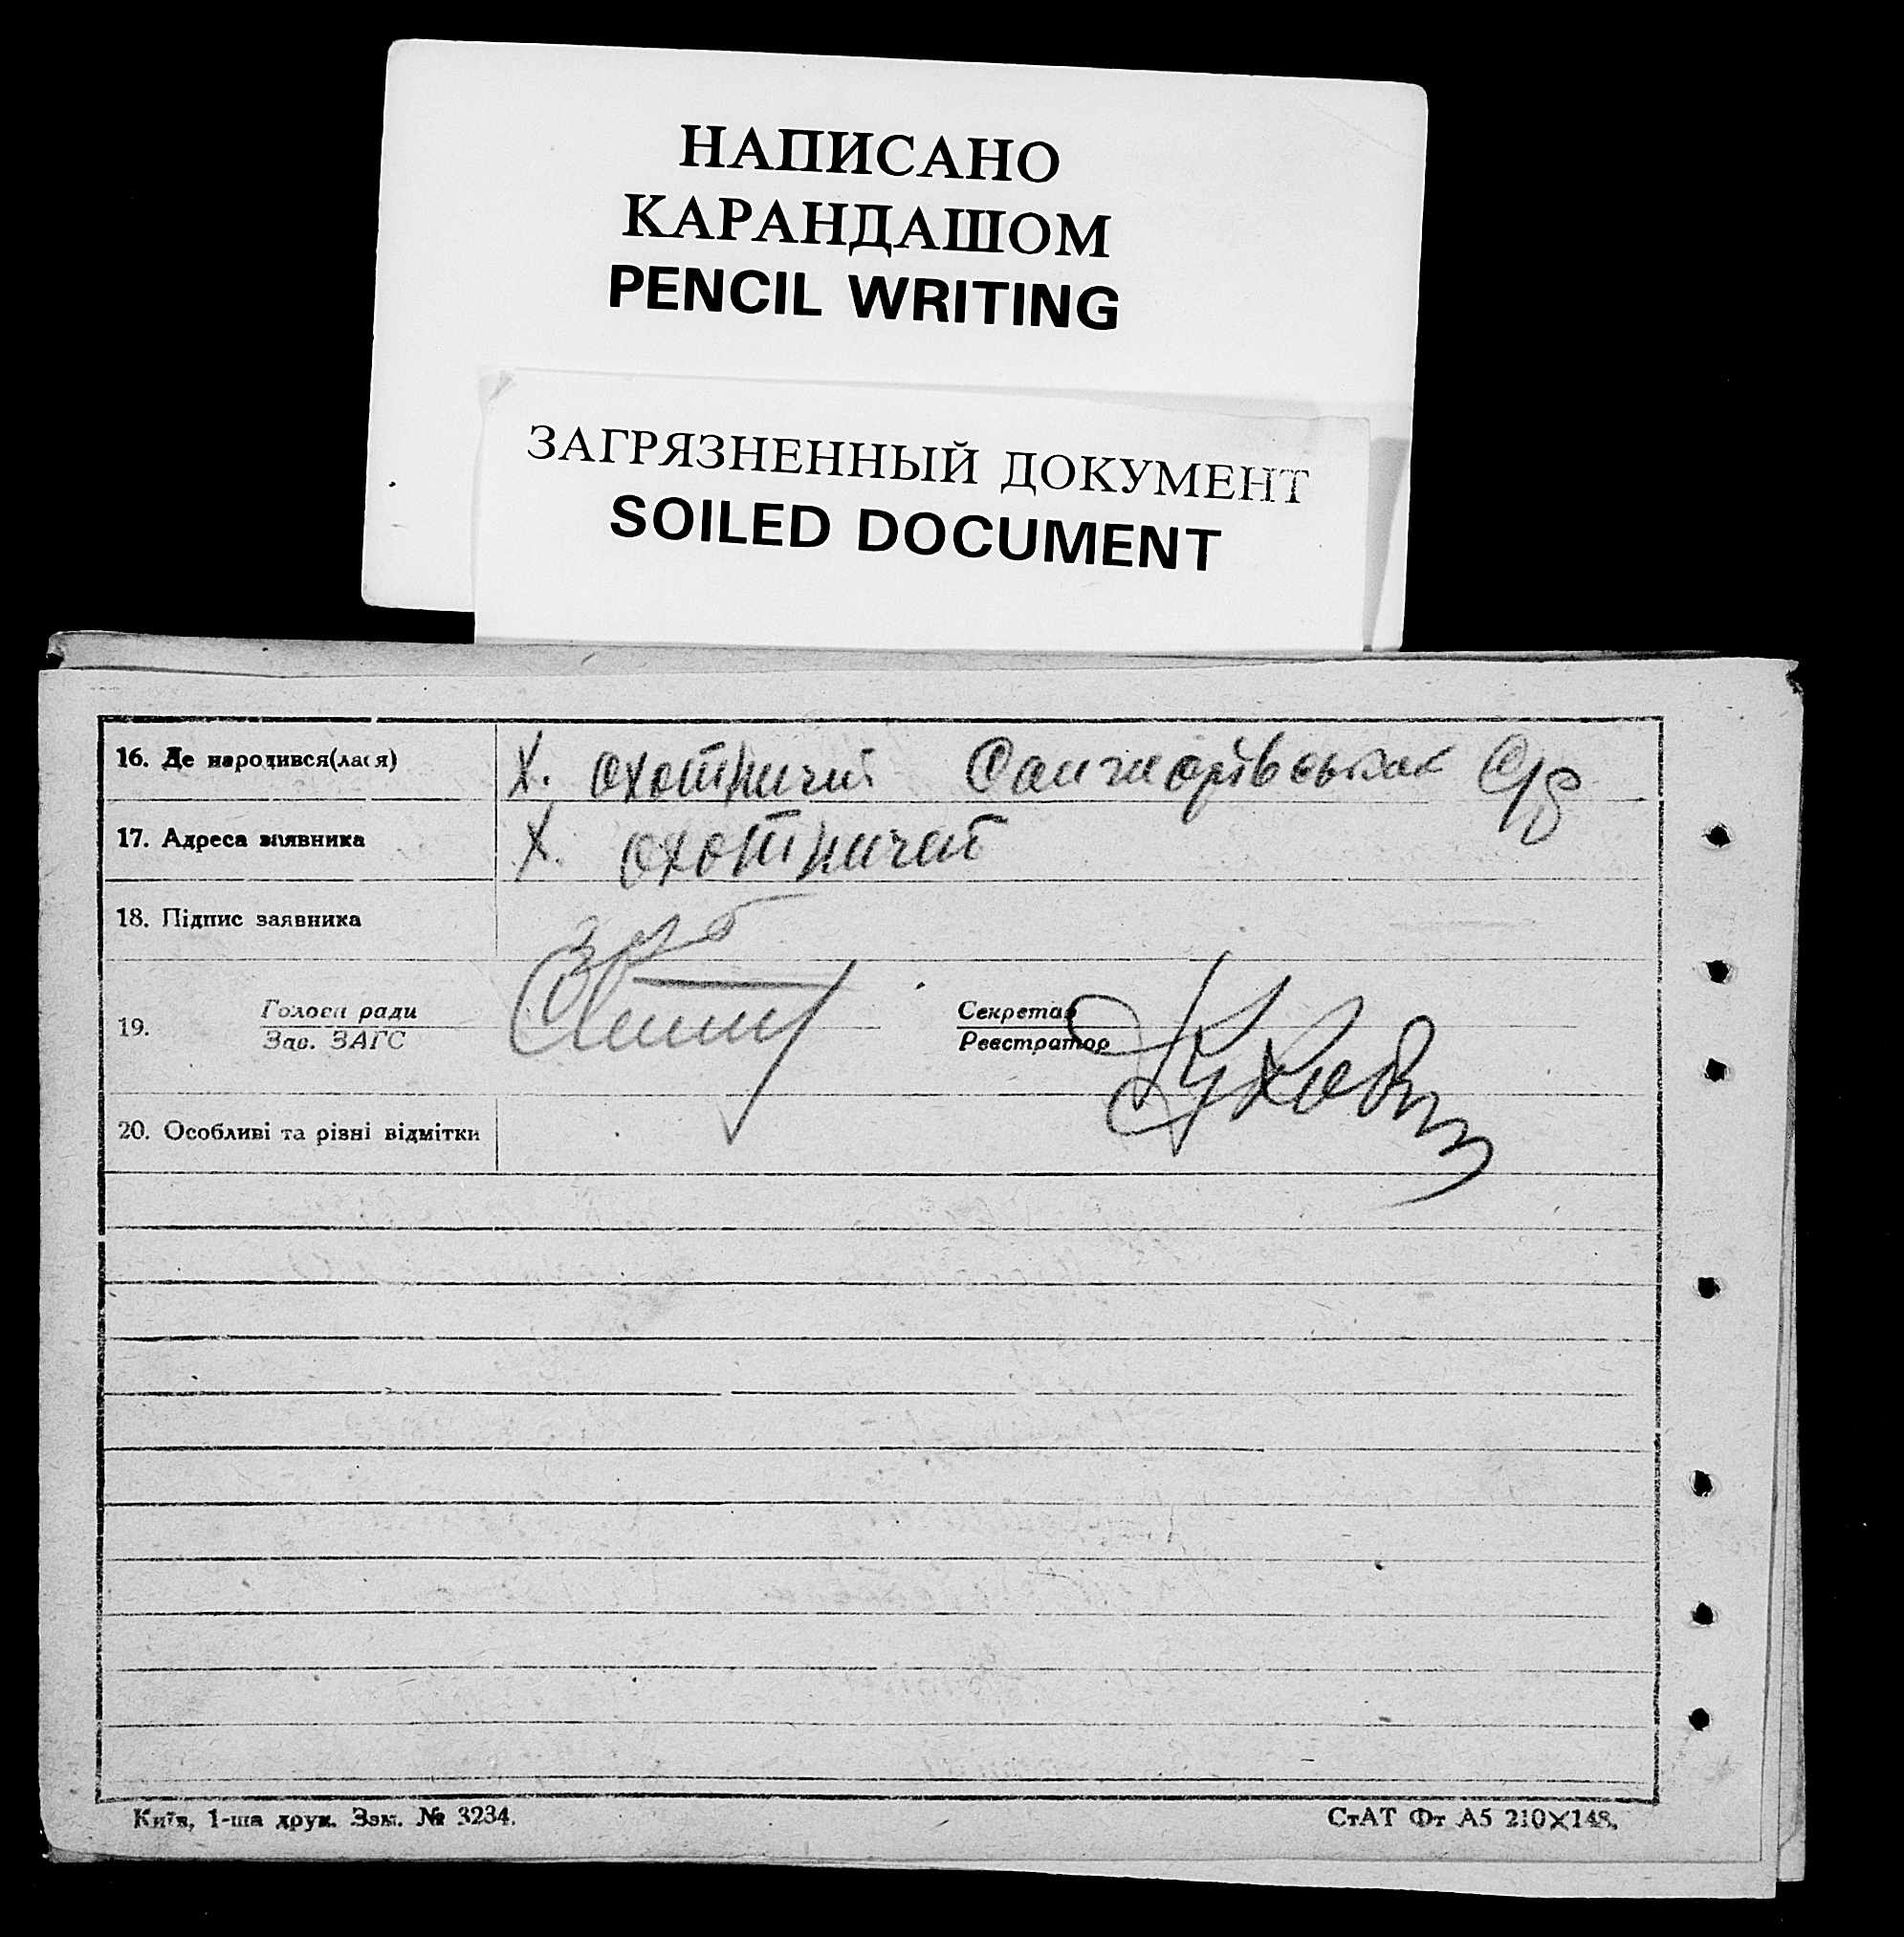 НАПИСАНО
КАРАНДАШОМ
PENCIL WRITING
ЗАГРЯЗНЕННЫЙ ДОКУМЕНТ
SOILED DOCUMENT
16. Де народився(лася) Х. охотничий
17. Адреса заявника Х. охотничий
18. Підпис заявника
19. Голова ради Секретар
Зав. ЗАГС Реєстратор
20. Особливі та різні відмітки
Київ, 1-ша друк. Зам. № 3234. СтАТ Фт А5 210×148.